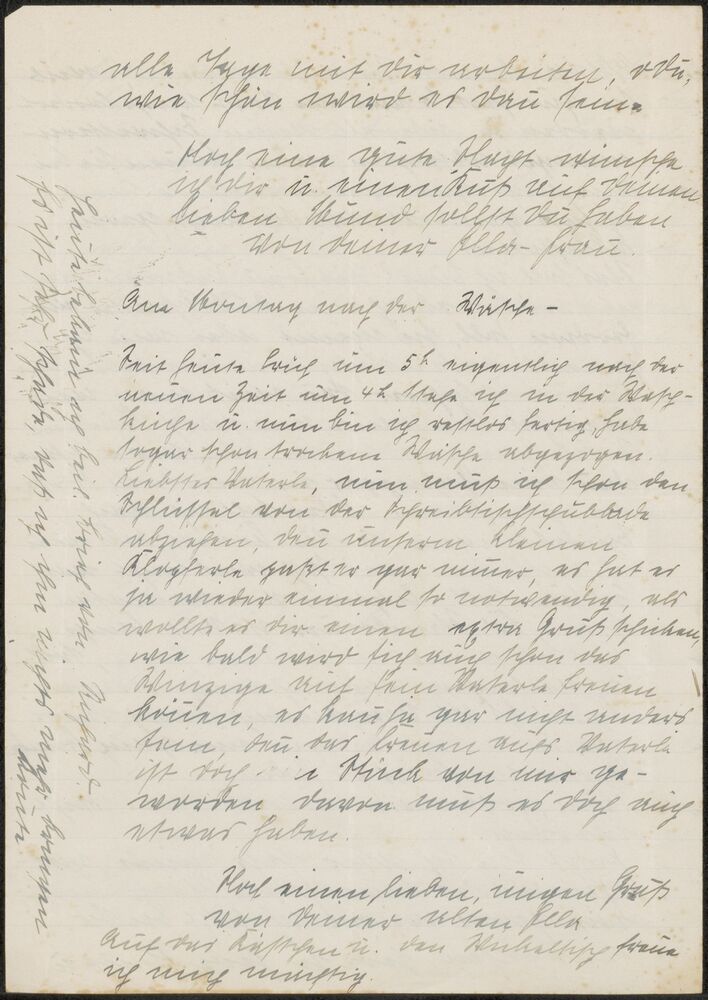 alle Tage mit dir arbeiten, o du,
wie schön wird es dan sein.
Noch eine gute Nacht wünsche
ich dir u. einen Kuß auf deinen
lieben Mund sollst du haben
von deiner Ella-Frau.
Am Montag nach der Wäsche -
Seit heute früh um 5h eigentlich nach der
neuen Zeit um 4h stehe ich in der Wasch-
küche u. nun bin ich restlos fertig, habe
sogar schon trockene Wäsche abgezogen.
Liebster Vaterle, nun muß ich schon den
Schlüssel von der Schreibtischschublade
abziehen, den unserm kleinen
Klopferle paßt er gar nimer, es hat es
ja wieder einmal so notwendig, als
wollte es dir einen extra Gruß schicken,
wie bald wird sich auch schon das
Winzige auf sein Vaterle freuen
könen, es kan ja gar nicht anders
sein, den das Freuen aufs Vaterle
ist doch i Stück von mir ge-
worden davon muß es doch auch
etwas haben.
Noch einen lieben, innigen Gruß
von deiner alten Ella
Auf das Kästchen u. den Wickeltisch freue
ich mich mächtig.
Heute bekam ich dein Brief von
Es ist sehr schade, daß ich ihm nichts mehr bringen
konnte